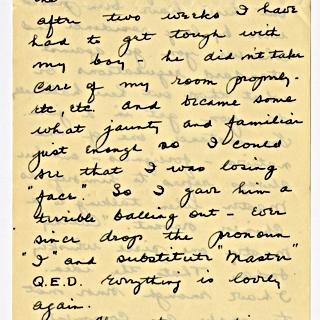 the
after two weeks I have
had to get tough with
my boy - he didn't take
care of my room properly -
etc, etc. and became some
what jaunty and familiar
just enough so I could
see that I was losing
"face". So I gave him a
terrible "balling out" - Ever
since drop the pronoun
"I" and substitute "Master"
Q.E.D. Everything is lovely
again.